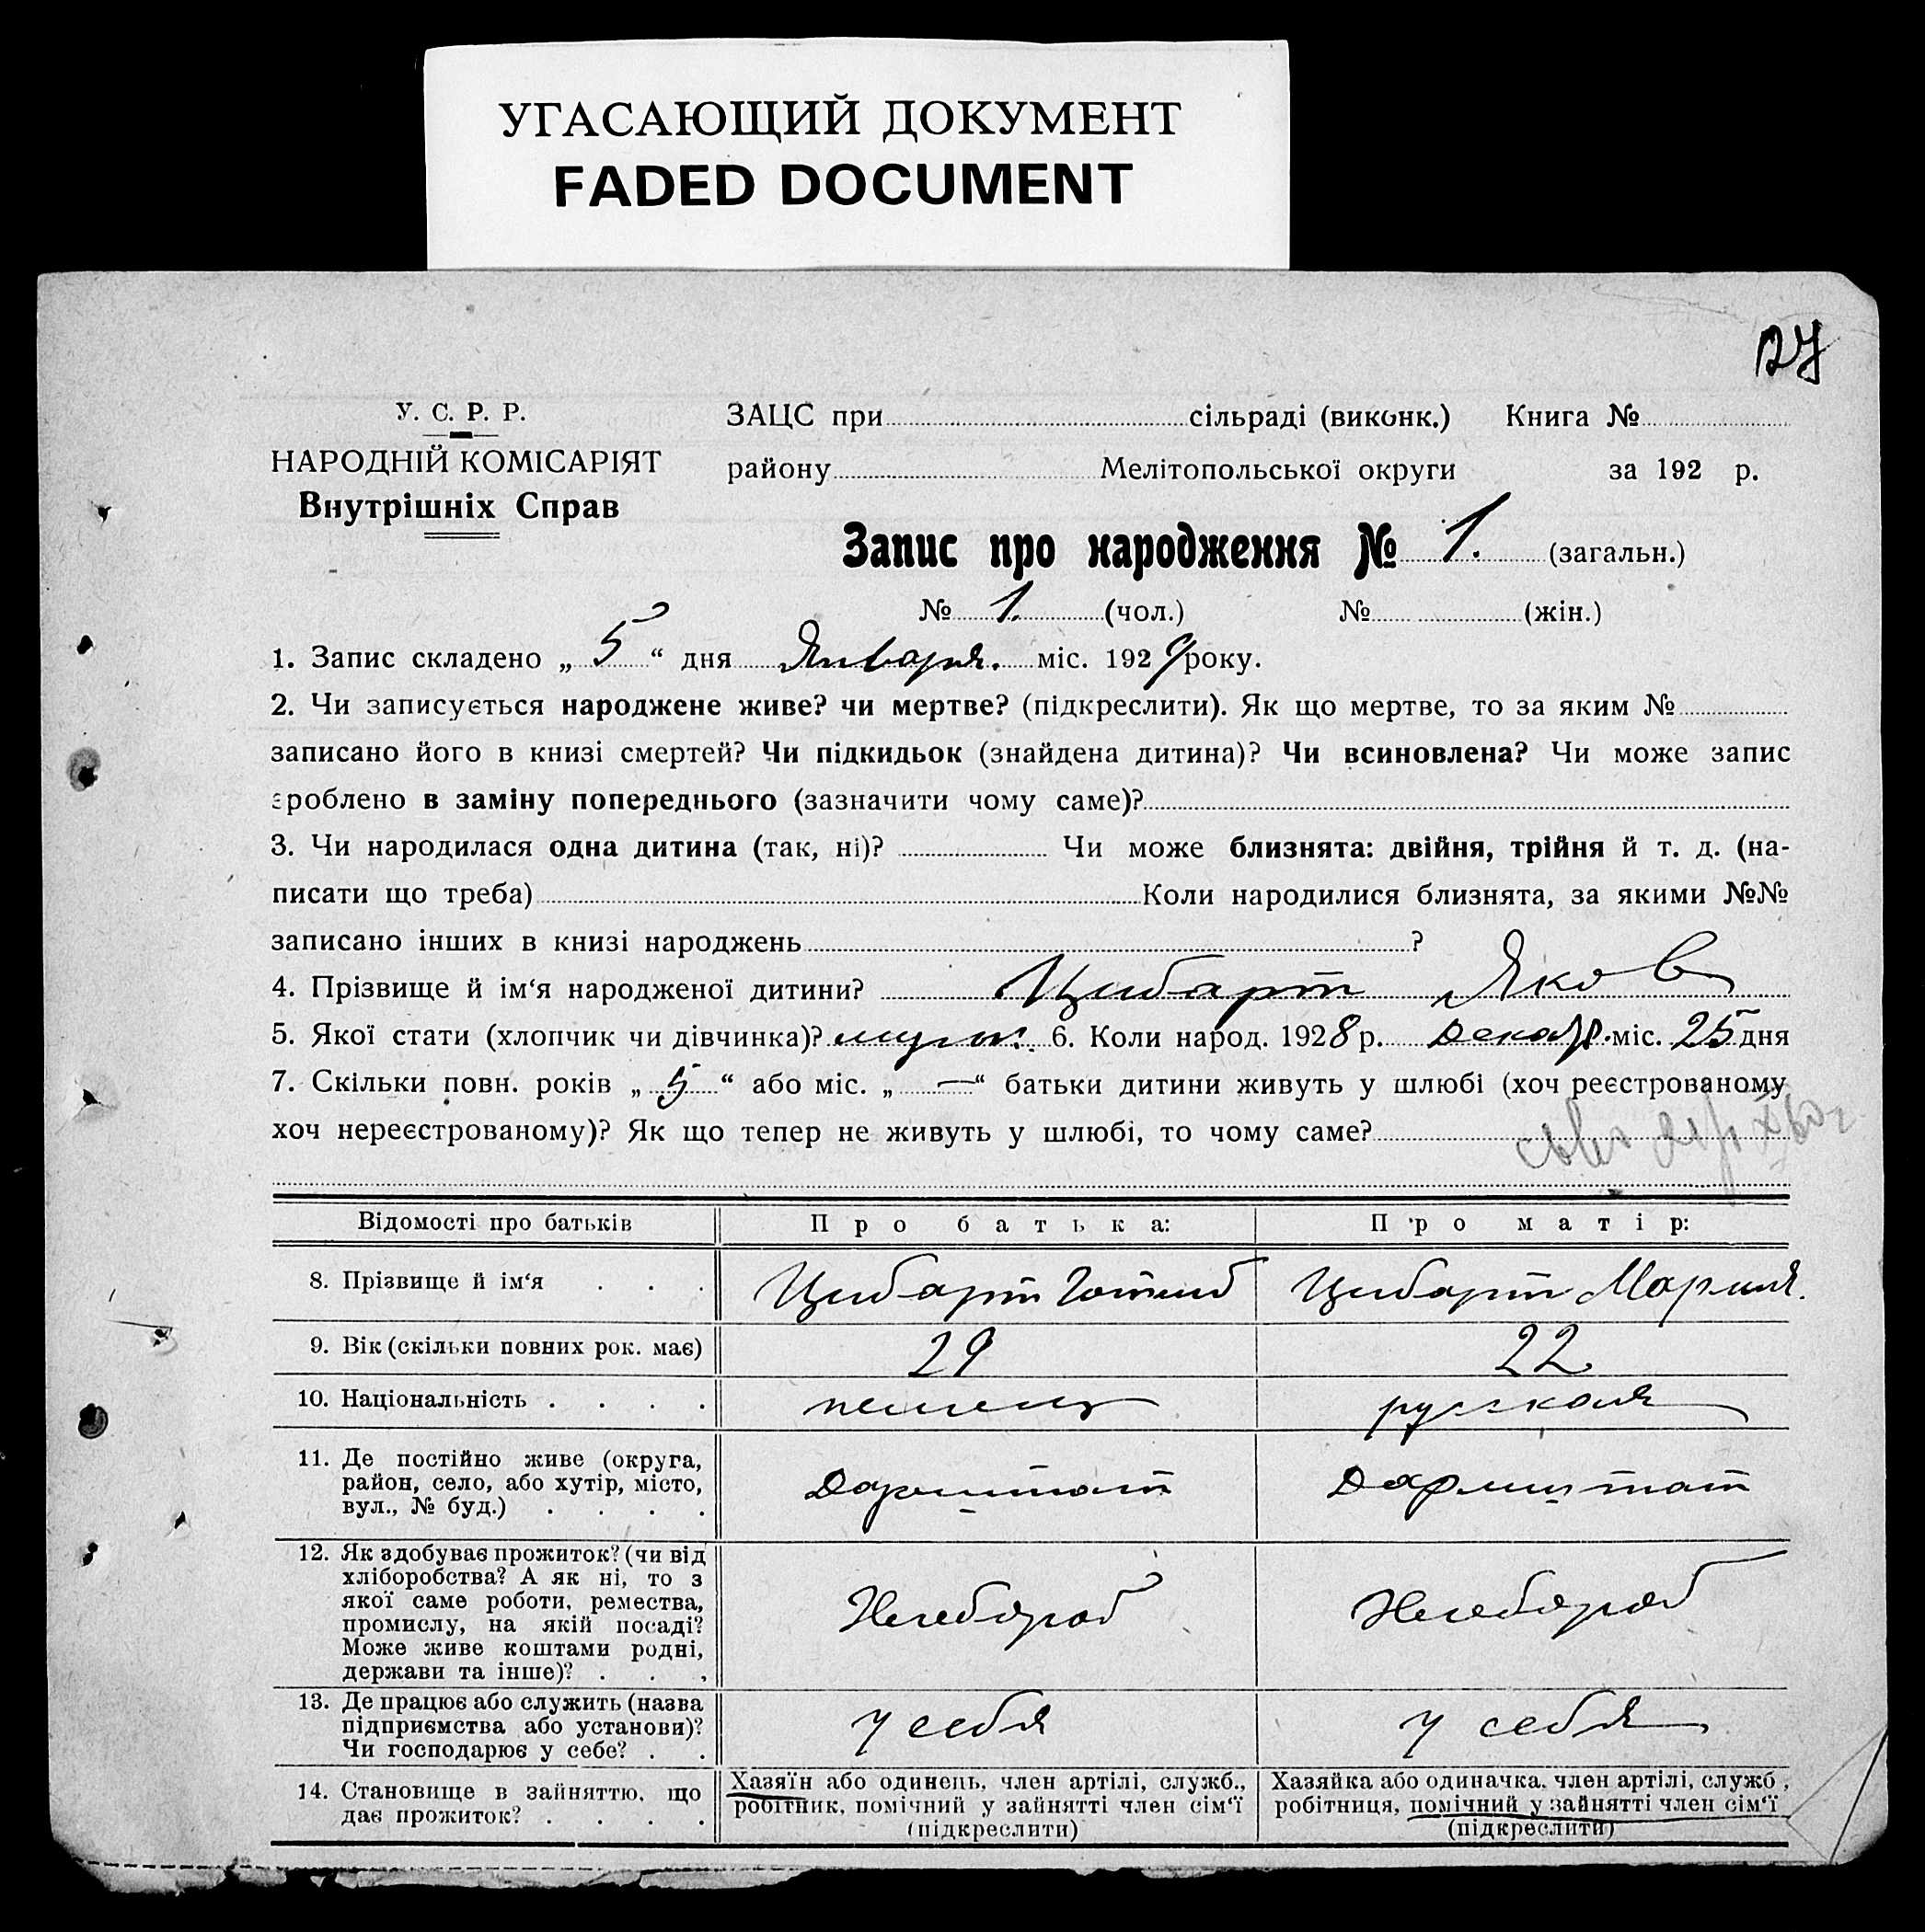 УГАСАЮЩИЙ ДОКУМЕНТ
FADED DOCUMENT
127
У. С. Р. Р.
НАРОДНІЙ КОМІСАРІЯТ
Внутрішніх Справ
ЗАЦС при сільраді (виконк.) Книга №
району Мелітопольської округи за 192 р.
Запис про народження № 1. (загальн.)
№ 1. (чол.) № (жін.)
1. Запис складено „ 5 “ дня Января. міс. 1929 року.
2. Чи записується народжене живе? чи мертве? (підкреслити). Як що мертве, то за яким №
записано його в книзі смертей? Чи підкидьок (знайдена дитина)? Чи всиновлена? Чи може запис
зроблено в заміну попереднього (зазначити чому саме)?
3. Чи народилася одна дитина (так, ні)? Чи може близнята: двійня, трійня й т. д. (на-
писати що треба) Коли народилися близнята, за якими №№
записано інших в книзі народжень ?
4. Прізвище й ім‘я народженої дитини? Цибарт Яков
5. Якої стати (хлопчик чи дівчинка)? 6. Коли народ. 1928 р. Декабр. міс. 25 дня
7. Скільки повн. років „ 5 “ або міс. „ — “ батьки дитини живуть у шлюбі (хоч реєстрованому
хоч нереєстрованому)? Як що тепер не живуть у шлюбі, то чому саме?
Відомості про батьків Про батька: Про матір:
8. Прізвище й ім‘я . . . Цибарт Готлиб Цибарт Мария.
9. Вік (скільки повних рок. має) 29 22
10. Національність . . . . немец русская
11. Де постійно живе (округа,
район, село, або хутір, місто,
вул., № буд.) . . . .
Дармштат Дармштат
12. Як здобуває прожиток? (чи від
хліборобства? А як ні, то з
якої саме роботи, ремества,
промислу, на якій посаді?
Може живе коштами родні,
держави та інше)? . . .
Хлебороб Хлебороб
13. Де працює або служить (назва
підприємства або установи)?
Чи господарює у себе? . .
у себя у себя
14. Становище в зайняттю, що
дає прожиток? . . . .
Хазяїн або одинець, член артілі, служб.,
робітник, помічний у зайнятті член сім‘ї
(підкреслити)
Хазяйка або одиначка, член артілі, служб,
робітниця, помічний у зайнятті член сім‘ї
(підкреслити)